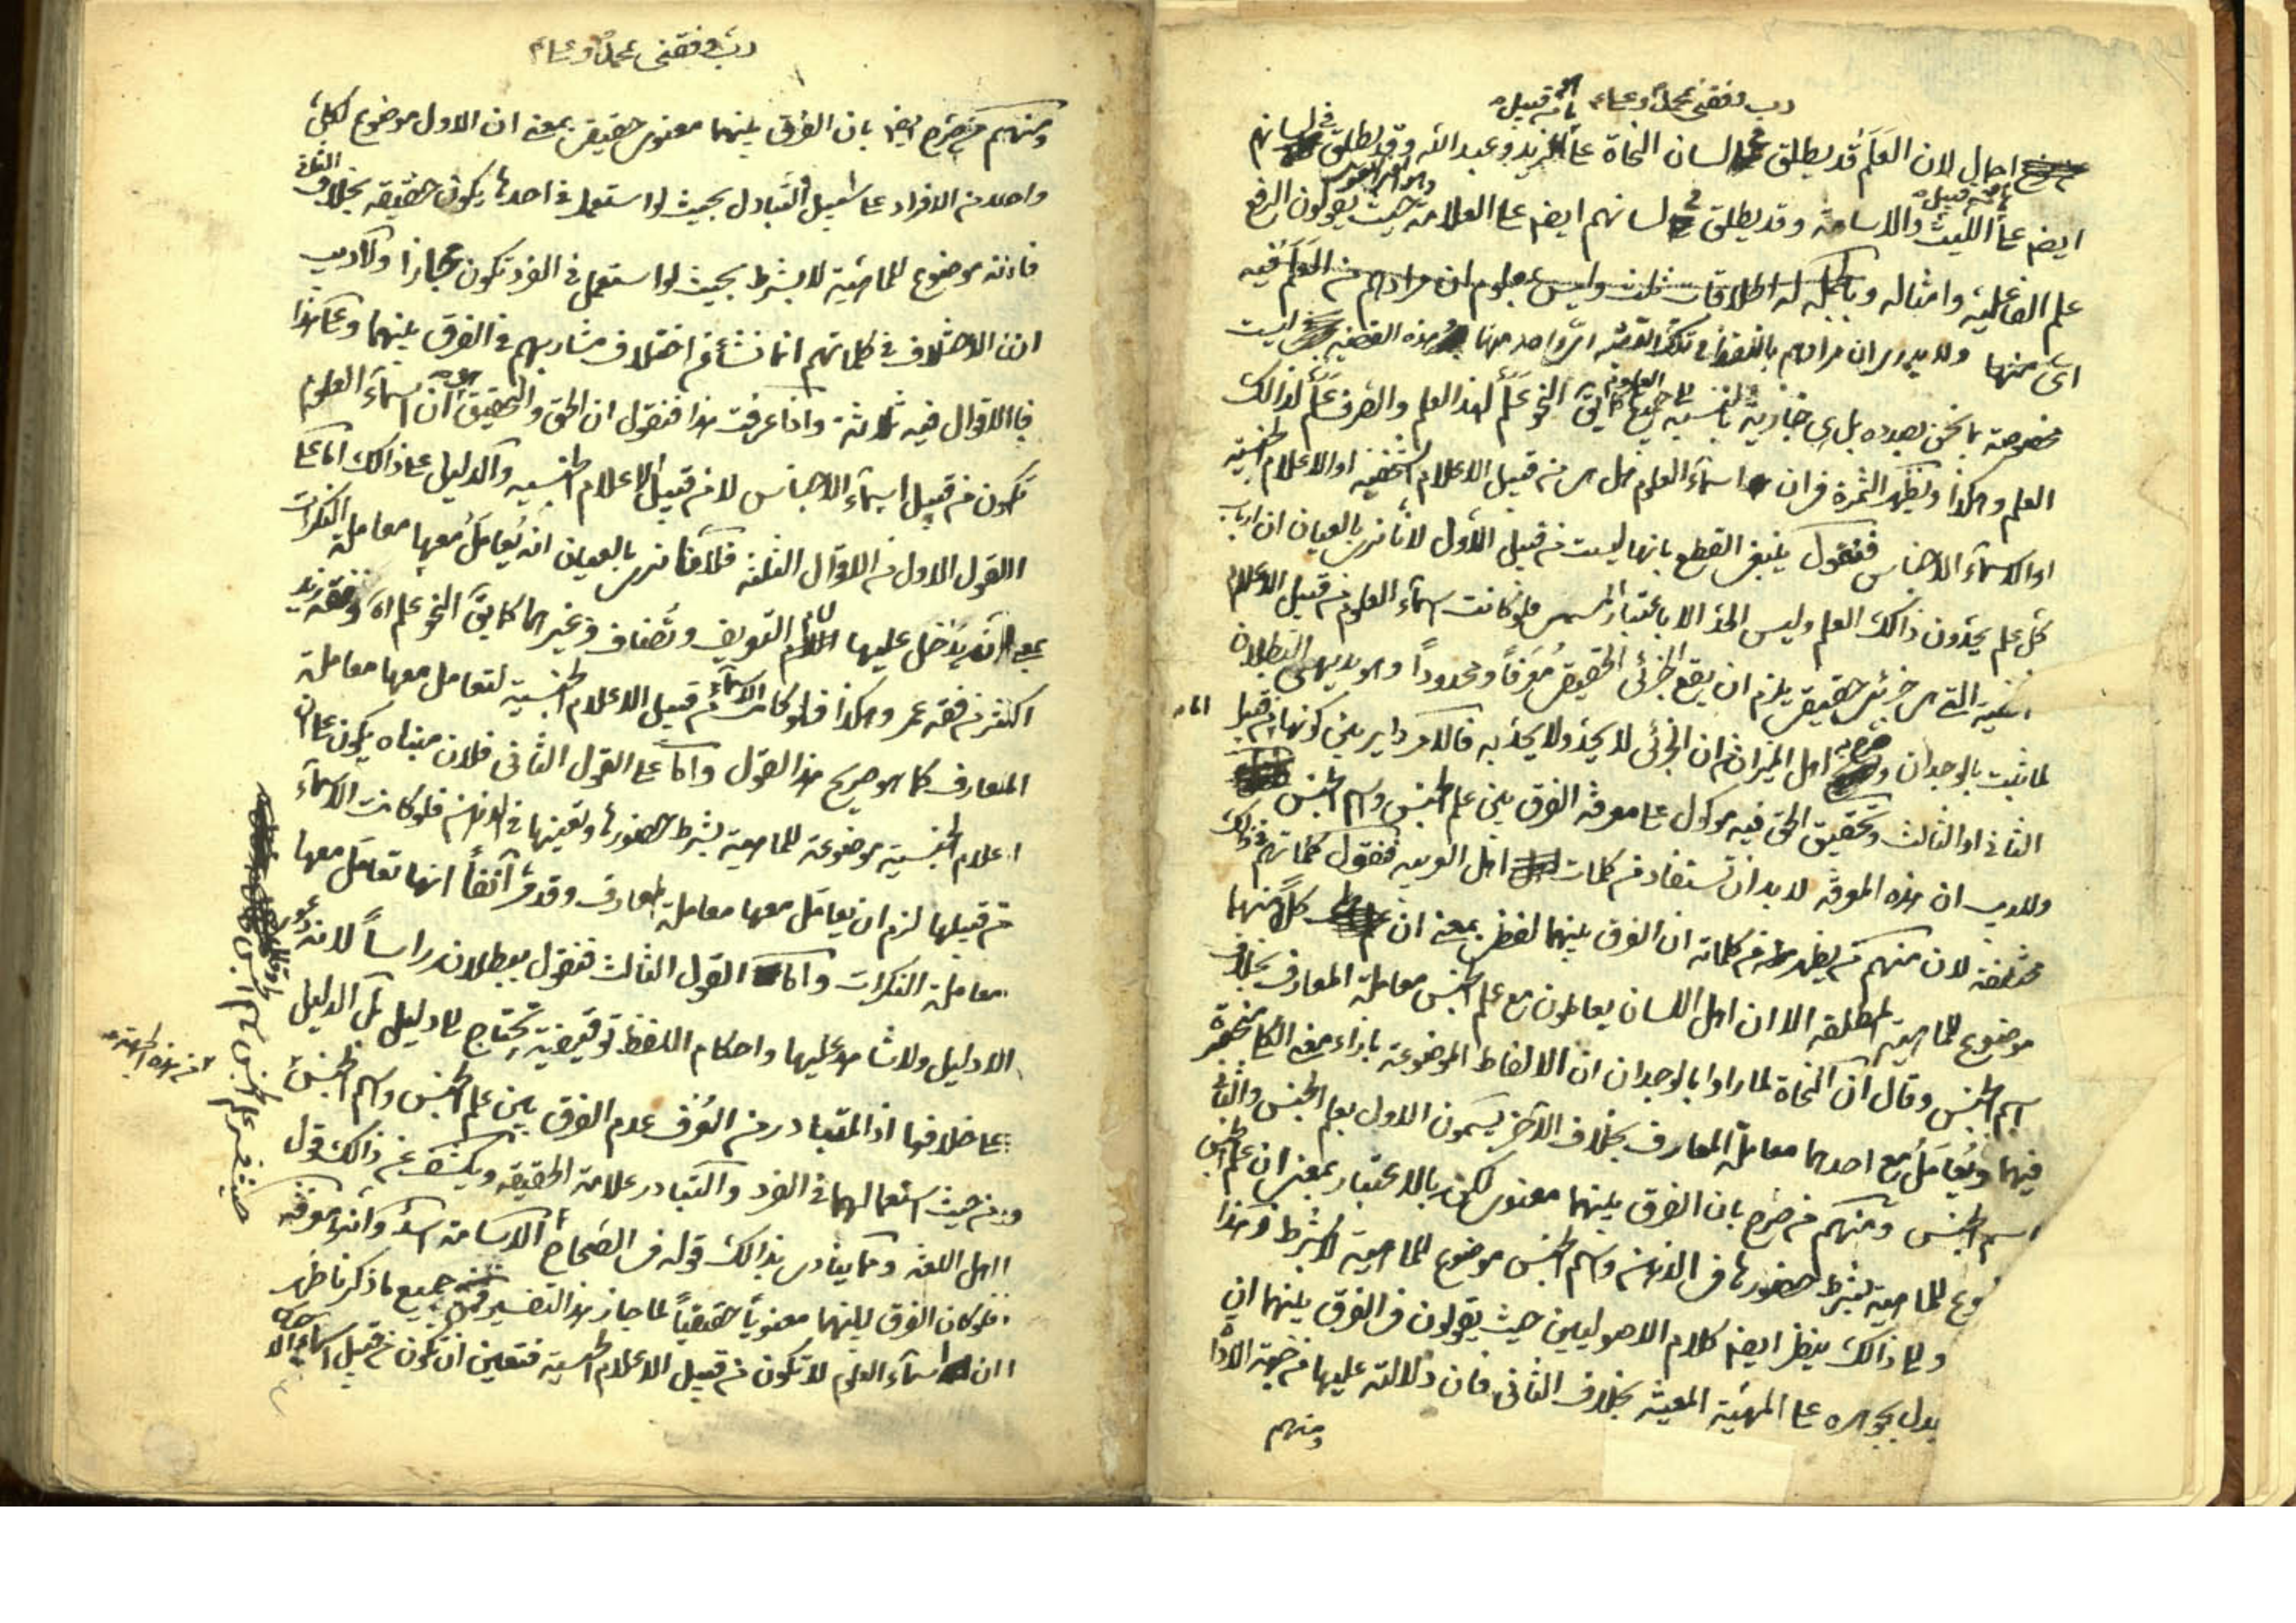 رب وفقنی عملاً وعلماً
اجمال لان العَلَم قد يطلق في لسان النحاة على ما من قبيل زيد وعبد الله وقد يطلق في لسانهم
ايضا على ما من قبيل الليث والاسامة وقد يطلق في لسانهم ايضا على العلامة حيث يقولون الرفع
علم الفاعلية وامثاله وبالجملة له اطلاقات ثلث وليس بمعلوم ان مرادهم من العَلَم فيه
اى منها ولا يدرى ان مرادهم باللفظ في تلك القضية اى واحد منها وهذه القضية ليست
مخصوصة بما نحن بصدده بل هى جارية بالنسبة الى جميع العلوم كما يق النحو عَلَم لهذا العلم والصرف عَلَم لذالك
العلم وهكذا وتظهر الثمرة فى ان اسمآء العلوم هل هى من قبيل الاعلام الشخصية او الاعلام الجنسية
او الاسمآء الاجناس فنقول ينبغى القطع بانها ليست من قبيل الاول لانا نرى بالعيان ان ارباب
كل علم يحدّون ذالك العلم وليس الحد الا باعتبار المسمى فلو كانت اسمآء العلوم من قبيل الاعلام
الشخصية التى هى جزئى حقيقى يلزم ان يقع الجزئى الحقيقى مُعَرَّفاً ومحدوداً وهو بديهى البطلان
لما ثبت بالوجدان وصرح به اهل الميزان من ان الجزئى لا يحدّ ولا يحدّ به فالامر داير بين كونها من قبيل
الثانى او الثالث وتحقيق الحق فيه موكول على معرفة الفرق بين علم الجنس واسم الجنس
ولا ريب ان هذه المعرفة لا بد ان تستفاد من كلمات اهل العربية فنقول كلماتهم فى ذالك
مختلفة لان منهم من يظهر من كلماته ان الفرق بينهما لفظى بمعنى ان كلاً منهما
موضوع للماهية المطلقة الا ان اهل اللسان يعاملون مع علم الجنس معاملة المعارف بخلاف
اسم الجنس وقال ان النحاة لما راوا بالوجدان ان الالفاظ الموضوعة بازاء معنى الكلى منحصرة
فيهما ويُعامَل مع احدهما معاملة المعارف بخلاف الآخر يسمون الاول بعلم الجنس والثانى
اسم الجنس ومنهم من صرح بان الفرق بينهما معنوى لكن بالاعتبار بمعنى ان علم الجنس
للماهية بشرط حضورها فى الذهن واسم الجنس موضوع للماهية لا بشرط وهذا
والى ذالك ينظر ايضا كلام الاصوليين حيث يقولون فى الفرق بينهما ان
يدل بجوهره على المهية المعينة بخلاف الثانى فان دلالته عليها من جهة الاداة
ومنهم
رب وفقنی عملاً وعلماً
ومنهم من صرح ايضا بان الفرق بينهما معنوى حقيقى بمعنى ان الاول موضوع لكل
واحد من الافراد على سبيل التبادل بحيث لو استعمل فى احدها يكون حقيقة بخلاف الثانى
فانه موضوع للماهية لا بشرط بحيث لو استعمل فى الفرد تكون مجازا ولا ريب
ان الاختلاف فى كلماتهم انما نشأ من اختلاف مشاربهم فى الفرق بينهما وعلى هذا
فالاقوال فيه ثلاثة واذا عرفت هذا فنقول ان الحق والتحقيق ان اسمآء العلوم
تكون من قبيل اسمآء الاجناس لا من قبيل الاعلام الجنسية والدليل على ذالك اما على
القول الاول من الاقوال الثلثة فلانا نرى بالعيان انه يُعامَل معها معاملة النكرات
بمعنى انه يدخل عليها لام التعريف وتُضاف وغيرهما كما يق النحو علم اه وفقه زيد
اكثر من فقه عمر وهكذا فلو كانت الاسمآء من قبيل الاعلام الجنسية لتعامل معها معاملة
المعارف كما هو صريح هذا القول واما على القول الثانى فلان مبناه يكون على ان
اعلام الجنسية موضوعة للماهية بشرط حضورها وتعينها فى الذهن فلو كانت الاسمآء
من قبيلها لزم ان يعامل معها معاملة المعارف وقد مر آنفاً انها تعامل معها
معاملة النكرات واما القول الثالث فنقول ببطلانه راساً لانه دعوى
لا دليل ولا شاهد عليها واحكام اللفظ توقيفية تحتاج الى دليل بل الدليل
على خلافها اذ المتبادر من العُرف عدم الفرق بين علم الجنس واسم الجنس
من حيث استعمالهما فى الفرد والتبادر علامة الحقيقة ويكشف عن ذالك قول
اهل اللغة ومما ينادى بذالك قوله فى الصحاح الاسامة اسد وانه معرفة
فلو كان الفرق بينهما معنوياً حقيقياً لما جاز هذا التفسير فمن جميع ما ذكرنا ظهر
ان اسمآء العلوم لا تكون من قبيل الاعلام الجنسية فتعين ان تكون من قبيل اسمآء الاجناس
من هذه الجهة
حيث فسر علم الجنس باسم الجنس